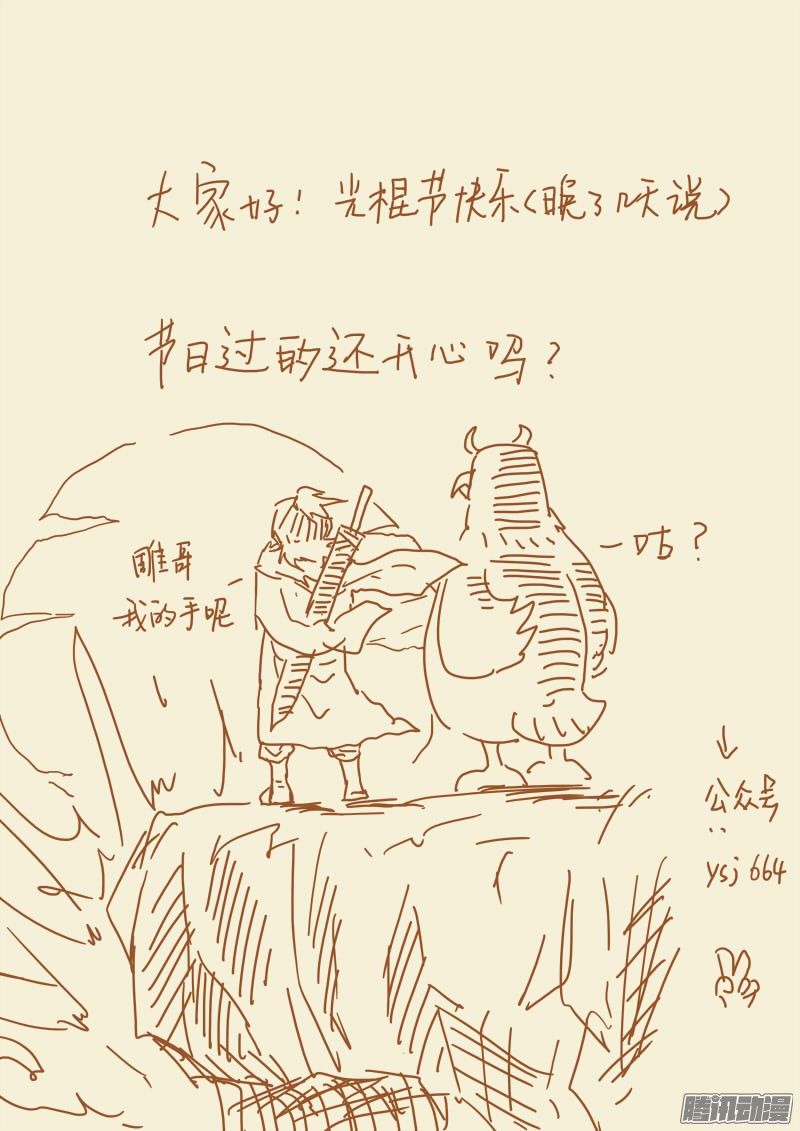 大家好！光棍节快乐（晚了几天说）
节日过的还开心吗？
雕哥
我的手呢
咕？
公众号
：
ysj664
腾讯动漫